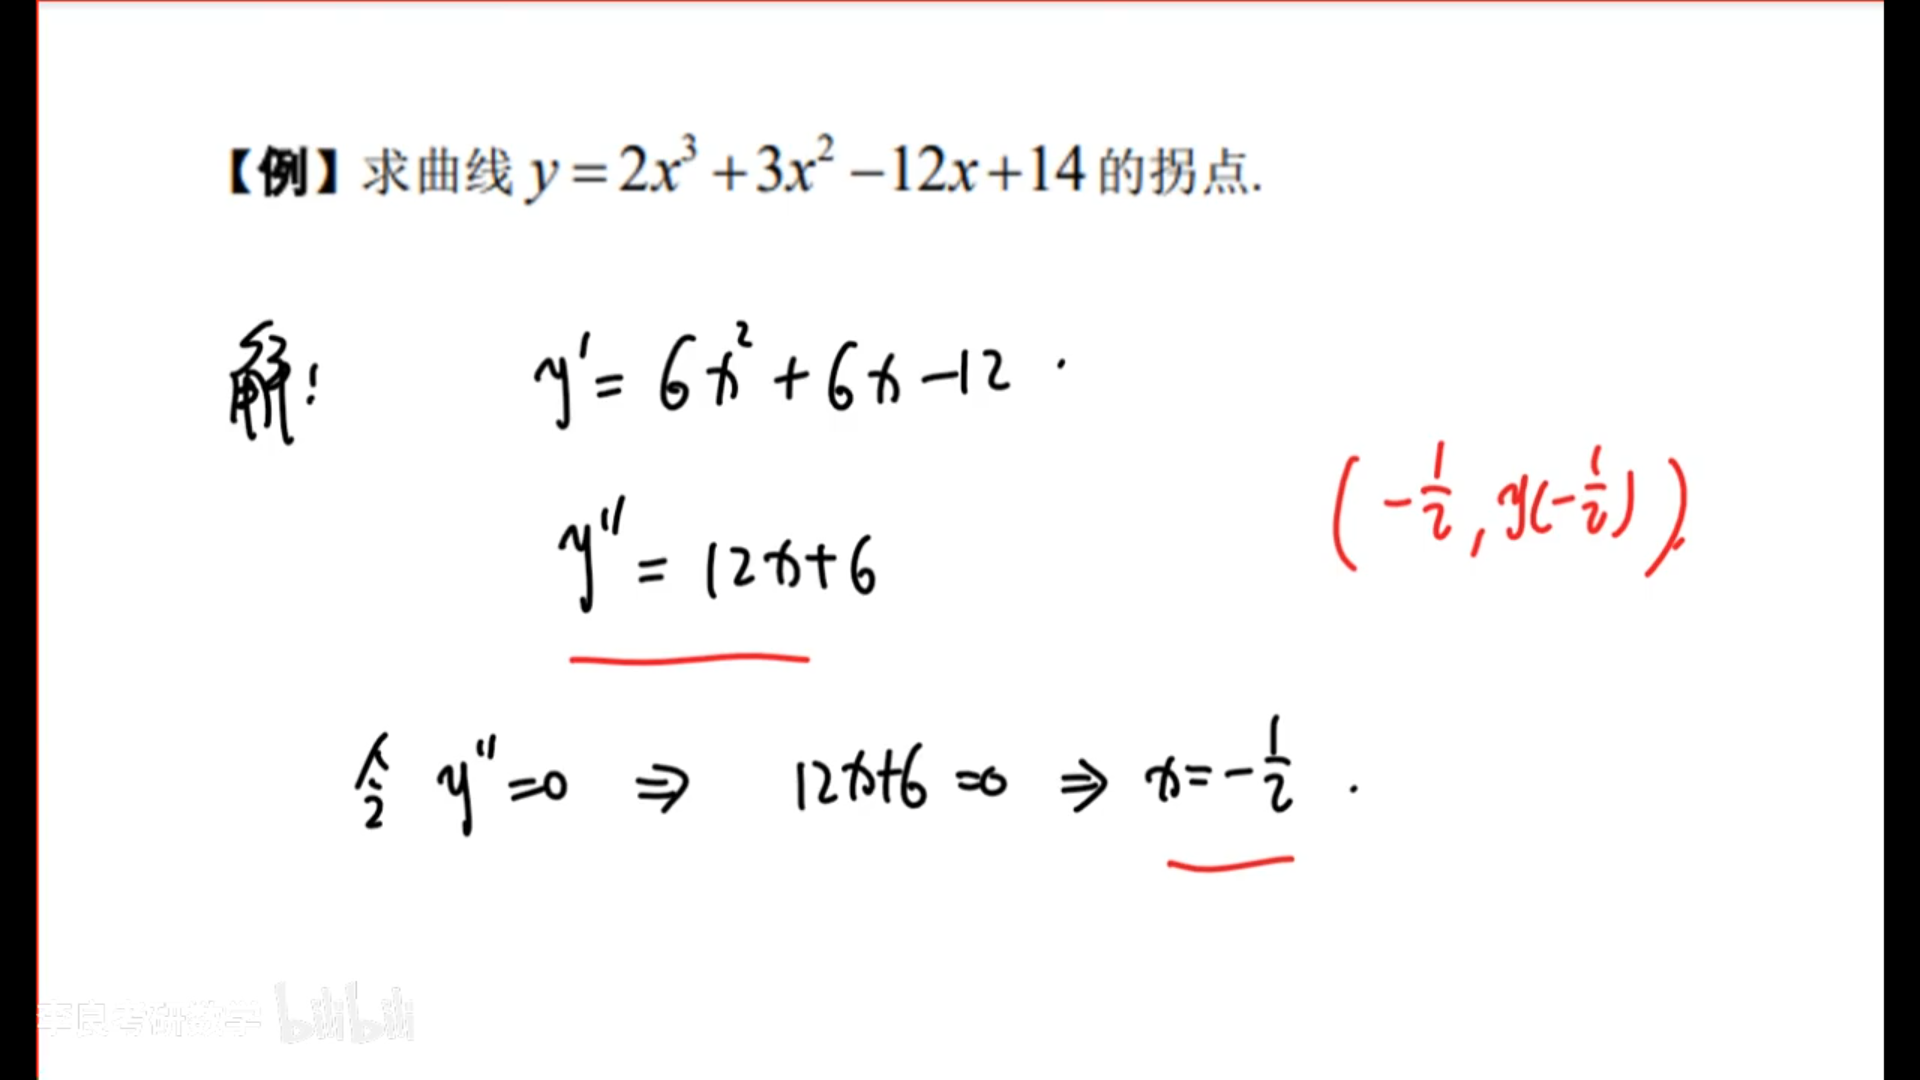 【例】求曲线 y = 2x³ + 3x² − 12x + 14 的拐点.
解: y' = 6x² + 6x − 12 .
(−1/2, y(−1/2)).
y'' = 12x + 6
令 y'' = 0 ⇒ 12x + 6 = 0 ⇒ x = −1/2 .
李良考研数学 bilibili